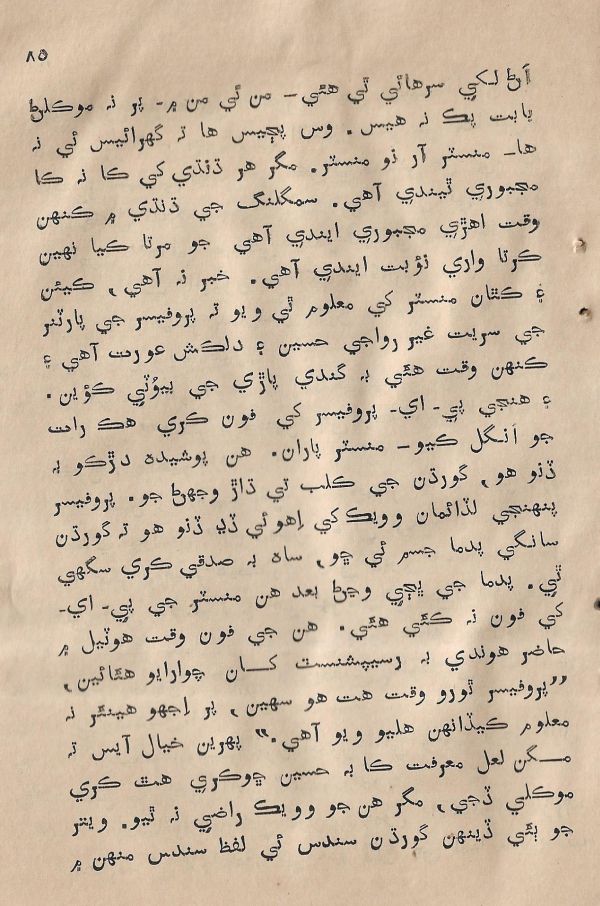 ٨٥
اَڻ لکي سرهائي ٿي هئي – من ئي من ۾ - پر نہ موڪلڻ
بابت پڪ نہ هيس. وس پڄيس ها تہ گهرائيس ئي نہ
ها – منسٽر آر نو منسٽر. مگر هر ڌنڌي کي ڪا نہ ڪا
مجبوري ٿيندي آهي. سمگلنگ جي ڌنڌي ۾ ڪنهن
وقت اهڙي مجبوري ايندي آهي جو مرتا کيا نهين
ڪرتا واري نؤبت ايندي آهي. خبر نہ آهي، ڪيئن
۽ ڪٿان منسٽر کي معلوم ٿي ويو تہ پروفيسر جي پارٽنر
جي سريت غير رواجي حسين ۽ دلڪش عورت آهي ۽
ڪنهن وقت هئي بہ گندي پاڙي جي بيوٽي ڪؤين.
۽ هنجي پي - اي - پروفيسر کي فون ڪري هڪ رات
جو اَنگل ڪيو – منسٽر پاران. هن پوشيده دڙڪو بہ
ڏنو هو، گورڌن جي ڪلب تي ڌاڙ وجهڻ جو. پروفيسر
پنهنجي لڏائمان وويڪ کي اِهو ئي ڏڍ ڏنو هو تہ گورڌن
سانگي پدما جسم ئي ڇو، ساه بہ صدقي ڪري سگهي
ٿي. پدما جي ڀڄي وڃڻ بعد هن منسٽر جي پي - اي -
کي فون نہ ڪئي هئي. هن جي فون وقت هوٽيل ۾
حاضر هوندي بہ رسيپشنسٽ کان چوارايو هئائين،
”پروفيسر ٿورو وقت هت هو سهين، پر اِجهو هينئر نہ
معلوم ڪيڏانهن هليو ويو آهي.“ پهرين خيال آيس تہ
مگن لعل معرفت ڪا بہ حسين ڇوڪري هٿ ڪري
موڪلي ڏجي، مگر هن جو وويڪ راضي نہ ٿيو. ويتر
جو ٻئي ڏينهن گورڌن سندس ئي لفظ سندس منهن ۾